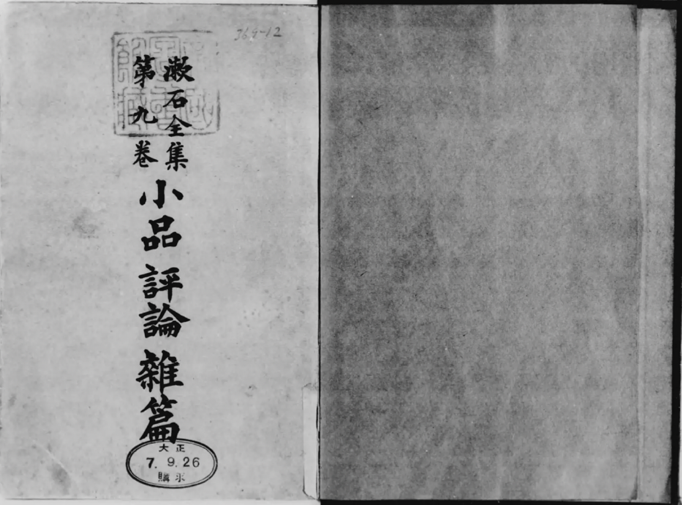 369-12
漱石全集
第九卷
小品 評論 雜篇
大正
7. 9. 26
購求